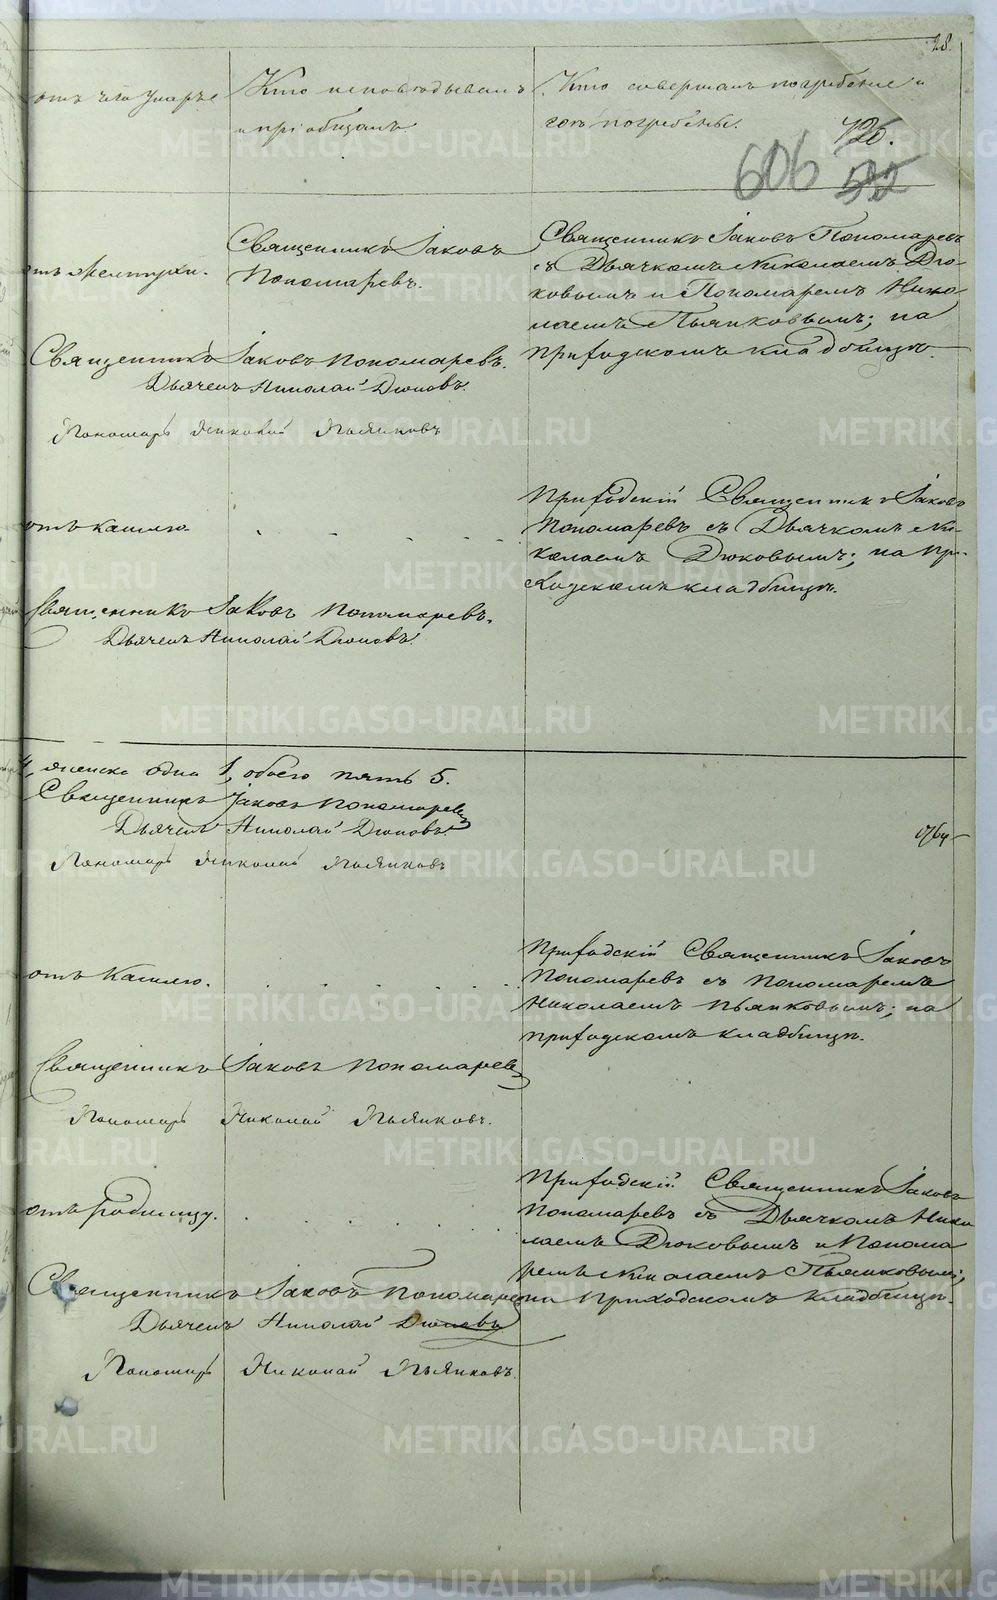 28.
отъ чего умеръ
Кто исповѣдывалъ
и пріобщалъ.
Кто совершалъ погребеніе и
гдѣ погребены.
726.
606 592
отъ желтухи.
Священникъ Іаковъ
Пономаревъ.
Священникъ Іаковъ Пономаревъ
съ Дьячкомъ Николаемъ Дю-
ковымъ и Пономаремъ Нико-
лаемъ Пьянковымъ; на
приходскомъ кладбищѣ.
Священникъ Іаковъ Пономаревъ.
Дьячекъ Николай Дюковъ.
Пономарь Николай Пьянковъ
отъ кашлю.
Приходскій Священникъ Іаковъ
Пономаревъ съ Дьячкомъ Ни-
колаемъ Дюковымъ; на при-
ходскомъ кладбищѣ.
Священникъ Іаковъ Пономаревъ.
Дьячекъ Николай Дюковъ.
женска одна 1, обоего пять 5.
Священникъ Іаковъ Пономаревъ
Дьячекъ Николай Дюковъ
Пономарь Николай Пьянковъ
отъ кашлю.
Приходскій Священникъ Іаковъ
Пономаревъ съ Пономаремъ
Николаемъ Пьянковымъ; на
приходскомъ кладбищѣ.
Священникъ Іаковъ Пономаревъ
Пономарь Николай Пьянковъ.
отъ родимцу.
Приходскій Священникъ Іаковъ
Пономаревъ съ Дьячкомъ Нико
лаемъ Дюковымъ и Понома
ремъ Николаемъ Пьянковымъ;
на Приходскомъ кладбищѣ.
Священникъ Іаковъ Пономаревъ
Дьячекъ Николай Дюковъ
Пономарь Николай Пьянковъ.
METRIKI.GASO-URAL.RU